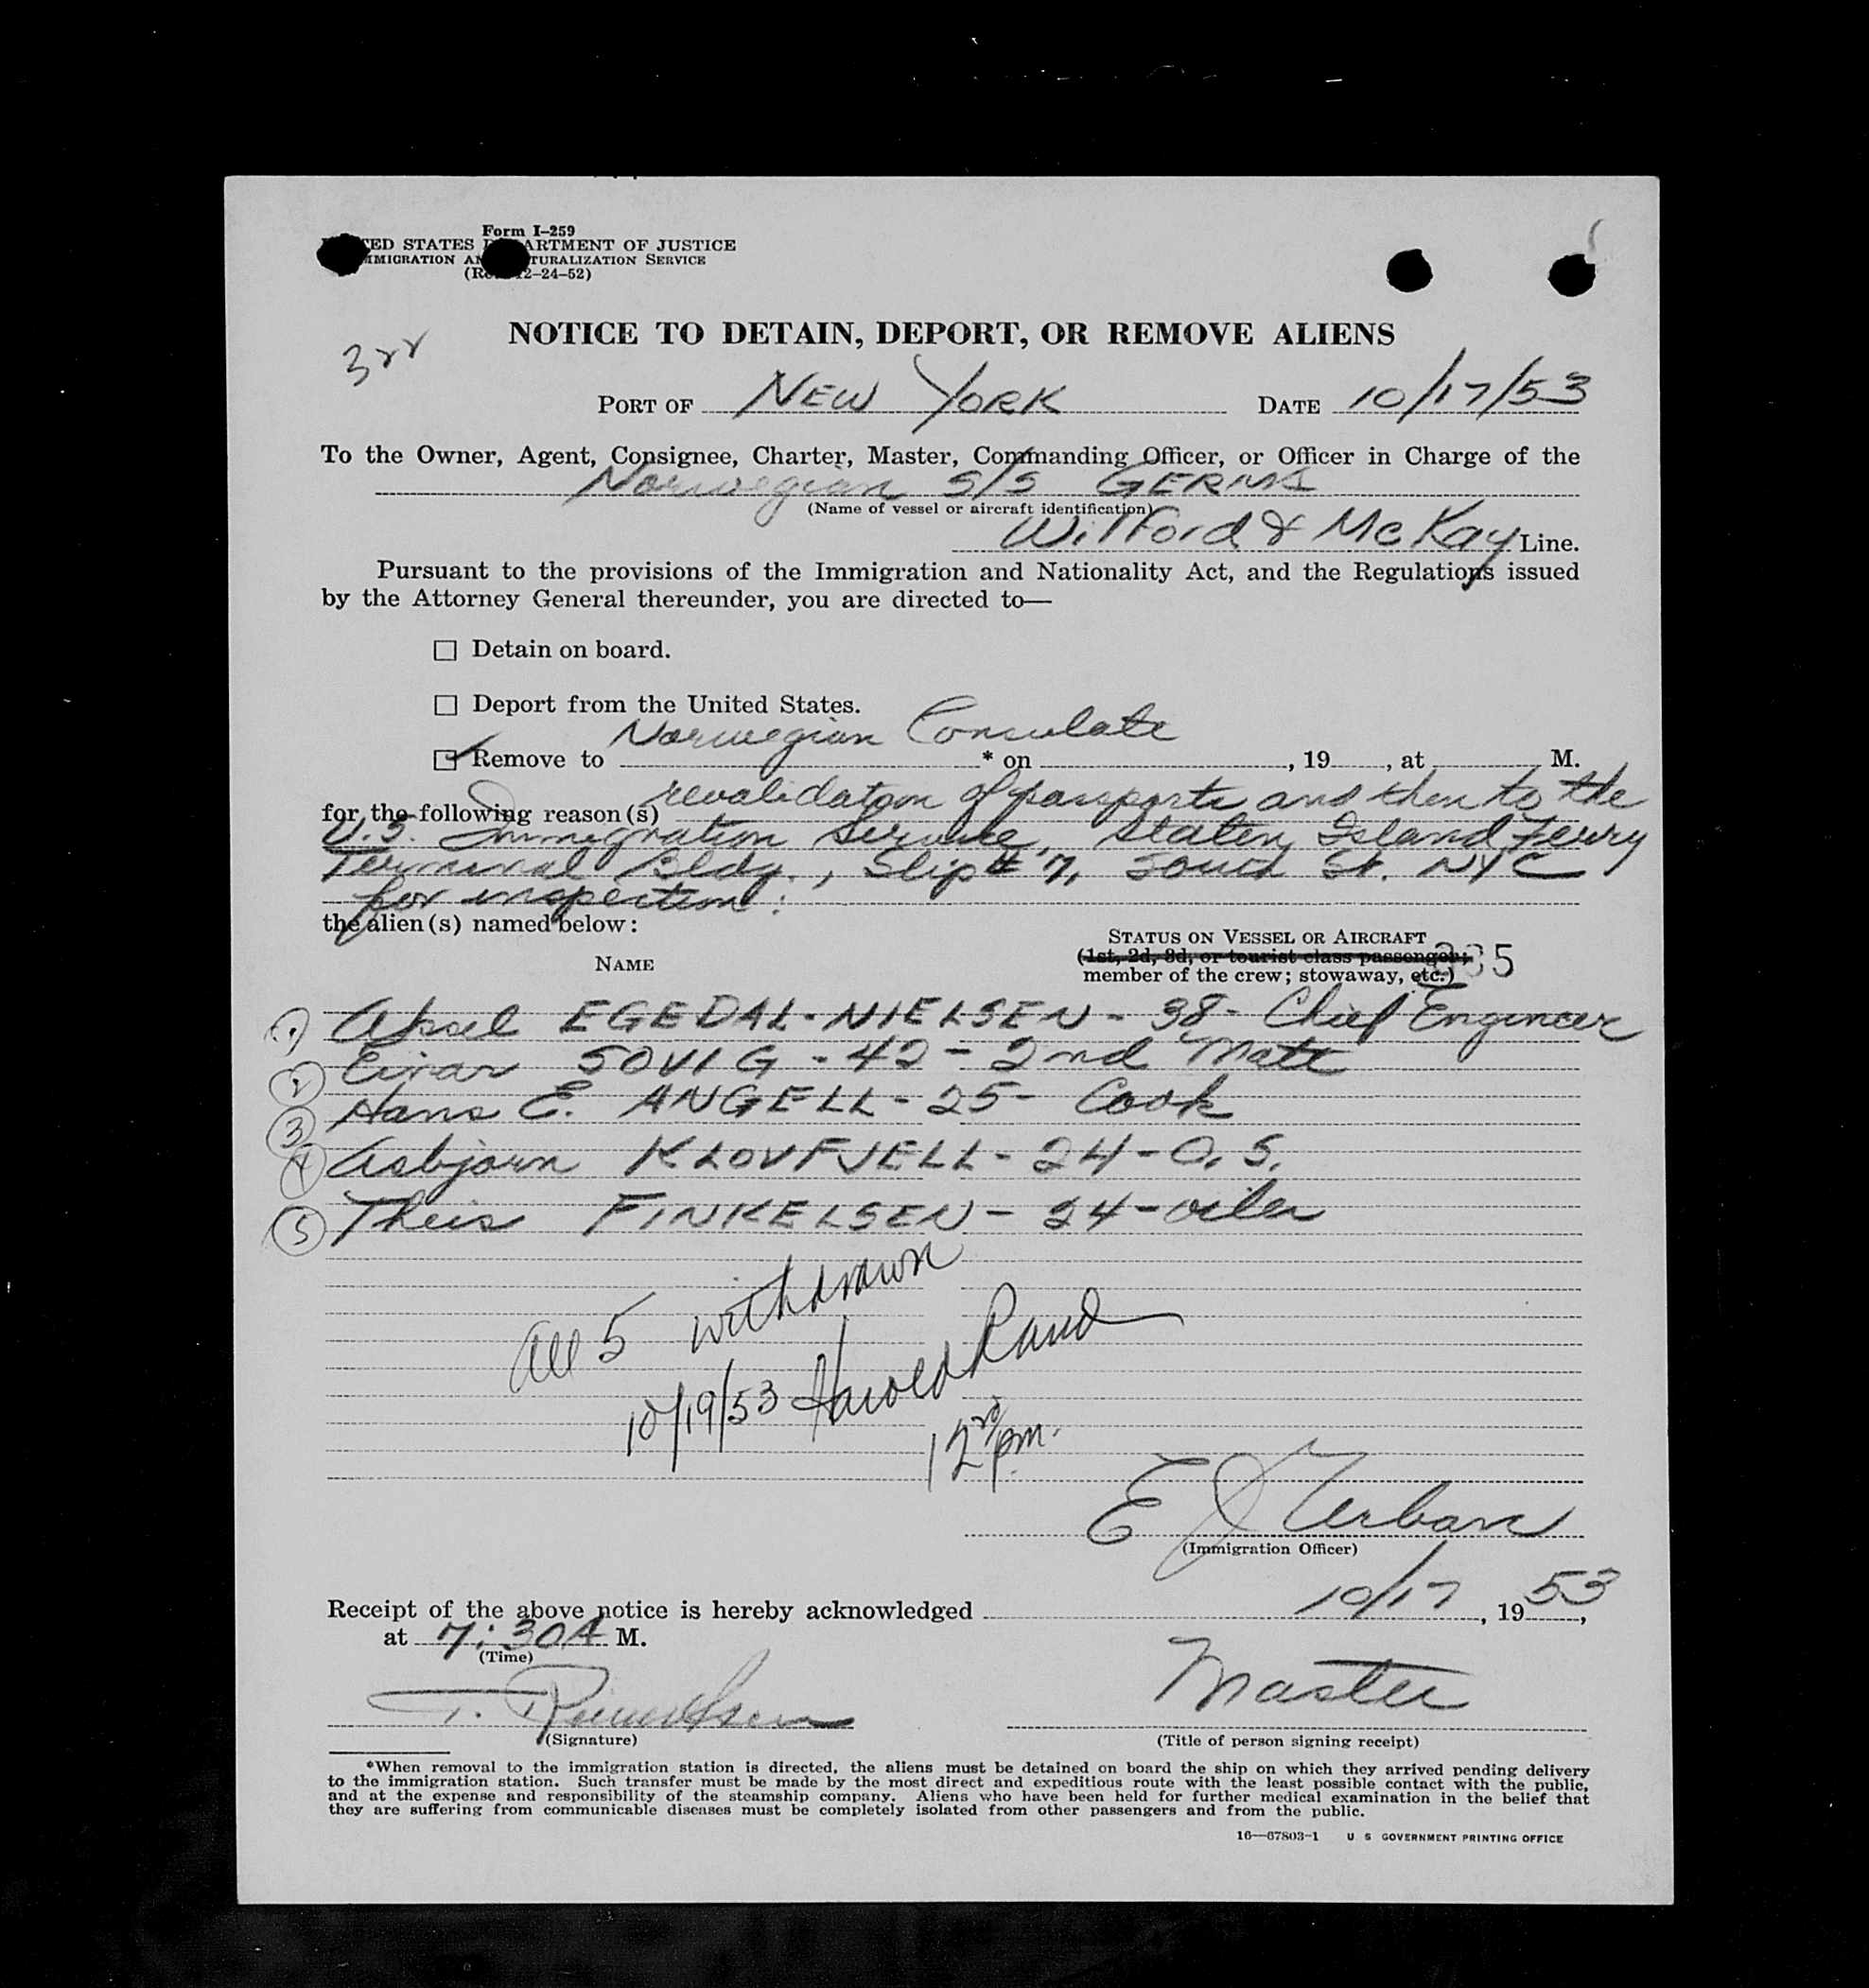 Form I–259
UNITED STATES DEPARTMENT OF JUSTICE
IMMIGRATION AND NATURALIZATION SERVICE
(Rev. 12–24–52)
NOTICE TO DETAIN, DEPORT, OR REMOVE ALIENS
PORT OF NEW YORK DATE 10/17/53
To the Owner, Agent, Consignee, Charter, Master, Commanding Officer, or Officer in Charge of the
Norwegian S/S
(Name of vessel or aircraft identification)
Wilford & McKay Line.
Pursuant to the provisions of the Immigration and Nationality Act, and the Regulations issued
by the Attorney General thereunder, you are directed to—
☐ Detain on board.
☐ Deport from the United States.
☑ Remove to Norwegian Consulate * on , 19 , at M.
for the following reason(s) revalidation of passports and then to the
U.S. Immigration Service, Staten Island Ferry
Terminal Bldg., Slip # 7, South St. NYC
for inspection:
the alien(s) named below:
NAME
STATUS ON VESSEL OR AIRCRAFT
(1st, 2d, 3d, or tourist class passenger;
member of the crew; stowaway, etc.)
1 Aksel EGEDAL-NIELSEN - 38 - Chief Engineer
2 Einar SOVIG - 42 - 2nd Mate
3 Hans E. ANGELL - 25 - Cook
4 Asbjorn KLOVFJELL - 24 - O.S.
5 Theis FINKELSEN - 24 - oiler
All 5 withdrawn
10/19/53 Harold Rand
12 pm.
E J Urban
(Immigration Officer)
Receipt of the above notice is hereby acknowledged 10/17, 1953,
at 7:30 A M.
(Time)
T.
(Signature)
Master
(Title of person signing receipt)
*When removal to the immigration station is directed, the aliens must be detained on board the ship on which they arrived pending delivery
to the immigration station. Such transfer must be made by the most direct and expeditious route with the least possible contact with the public,
and at the expense and responsibility of the steamship company. Aliens who have been held for further medical examination in the belief that
they are suffering from communicable diseases must be completely isolated from other passengers and from the public.
16—67803-1 U S GOVERNMENT PRINTING OFFICE